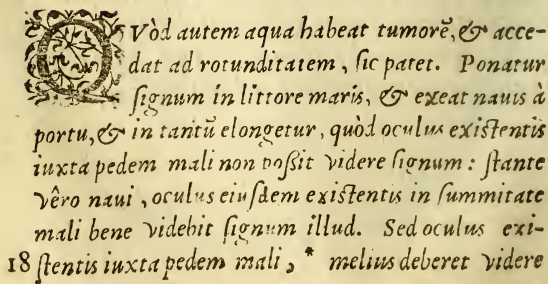 QVòd autem aqua habeat tumorē, & acce-
dat ad rotunditatem, sic patet. Ponatur
signum in littore maris, & exeat nauis à
portu, & in tantū elongetur, quòd oculus existentis
iuxta pedem mali non possit videre signum: stante
vêro naui, oculus eiusdem existentis in summitate
mali bene videbit signum illud. Sed oculus exi-
18 stentis iuxta pedem mali, * melius deberet videre